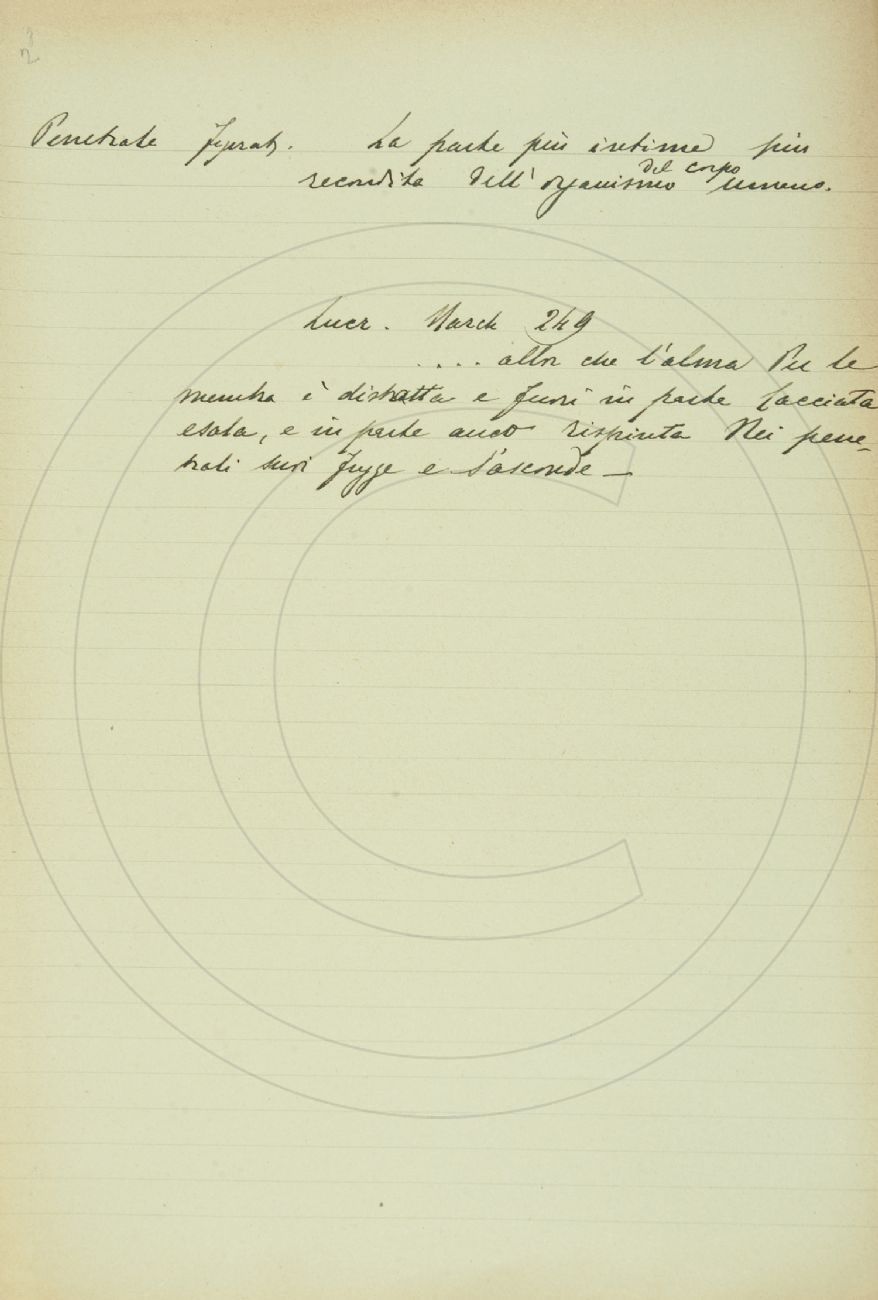 Penetrale figurat. La parte più intima più
recondita dell'organismo del corpo umano.
Lucr. March 249
.... allor che l'alma Per le
membra è distratta e fuori in parte Cacciata
esala, e in parte anco rispinta Nei pene-
trali suoi fugge e s'asconde —